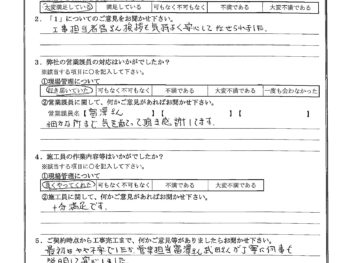 大変満足している 満足している 可もなく不可もなく 不満である 大変不満である
2．「1」についてのご意見をお聞かせ下さい。
工事担当者皆さん挨拶も気持よく安心してたせられました。
3．弊社の営業課員の対応はいかがでしたか？
※該当する項目に○を記入して下さい。
①現場管理について
行き届いていた 可もなく不可もなく 不満である 大変不満である 一度も会わなかった
②営業課員に関して、何かご意見があればお聞かせ下さい。
営業課員名【 】【 】【 】
細かな所まで気を配って頂き感謝してます。
4．施工員の作業内容等はいかがでしたか？
※該当する項目に○を記入して下さい。
①現場管理について
良くやってくれた 可もなく不可もなく 不満である 大変不満である
②施工員に関して、何かご意見がありましたらお聞かせ下さい。
十分満足です。
5．ご契約時点から工事完工まで、何かご意見等がありましたらお聞かせ下さい。
最初はやや不安でしたが、営業担当 さん 武田さんが丁寧に何事も
説明して